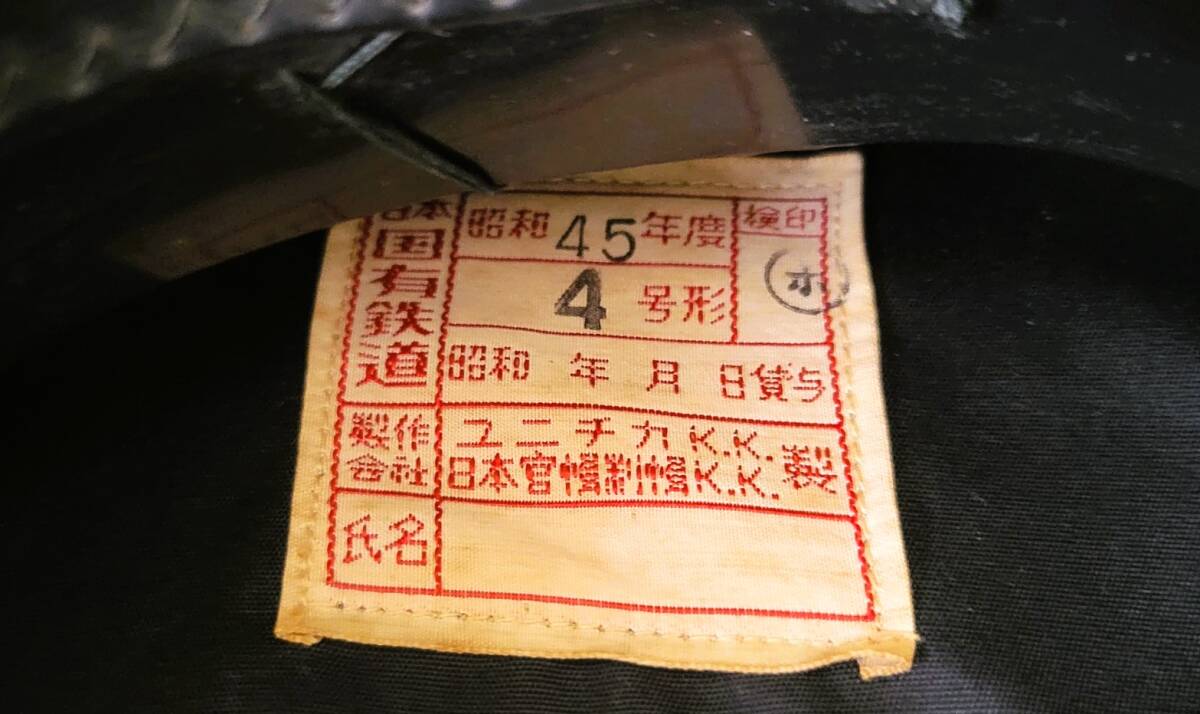 日本
国有鉄道
昭和45年度
検印
ホ
4号形
昭和 年 月 日貸与
製作会社
ユニチカK.K.
日本官帽制帽K.K.製
氏名